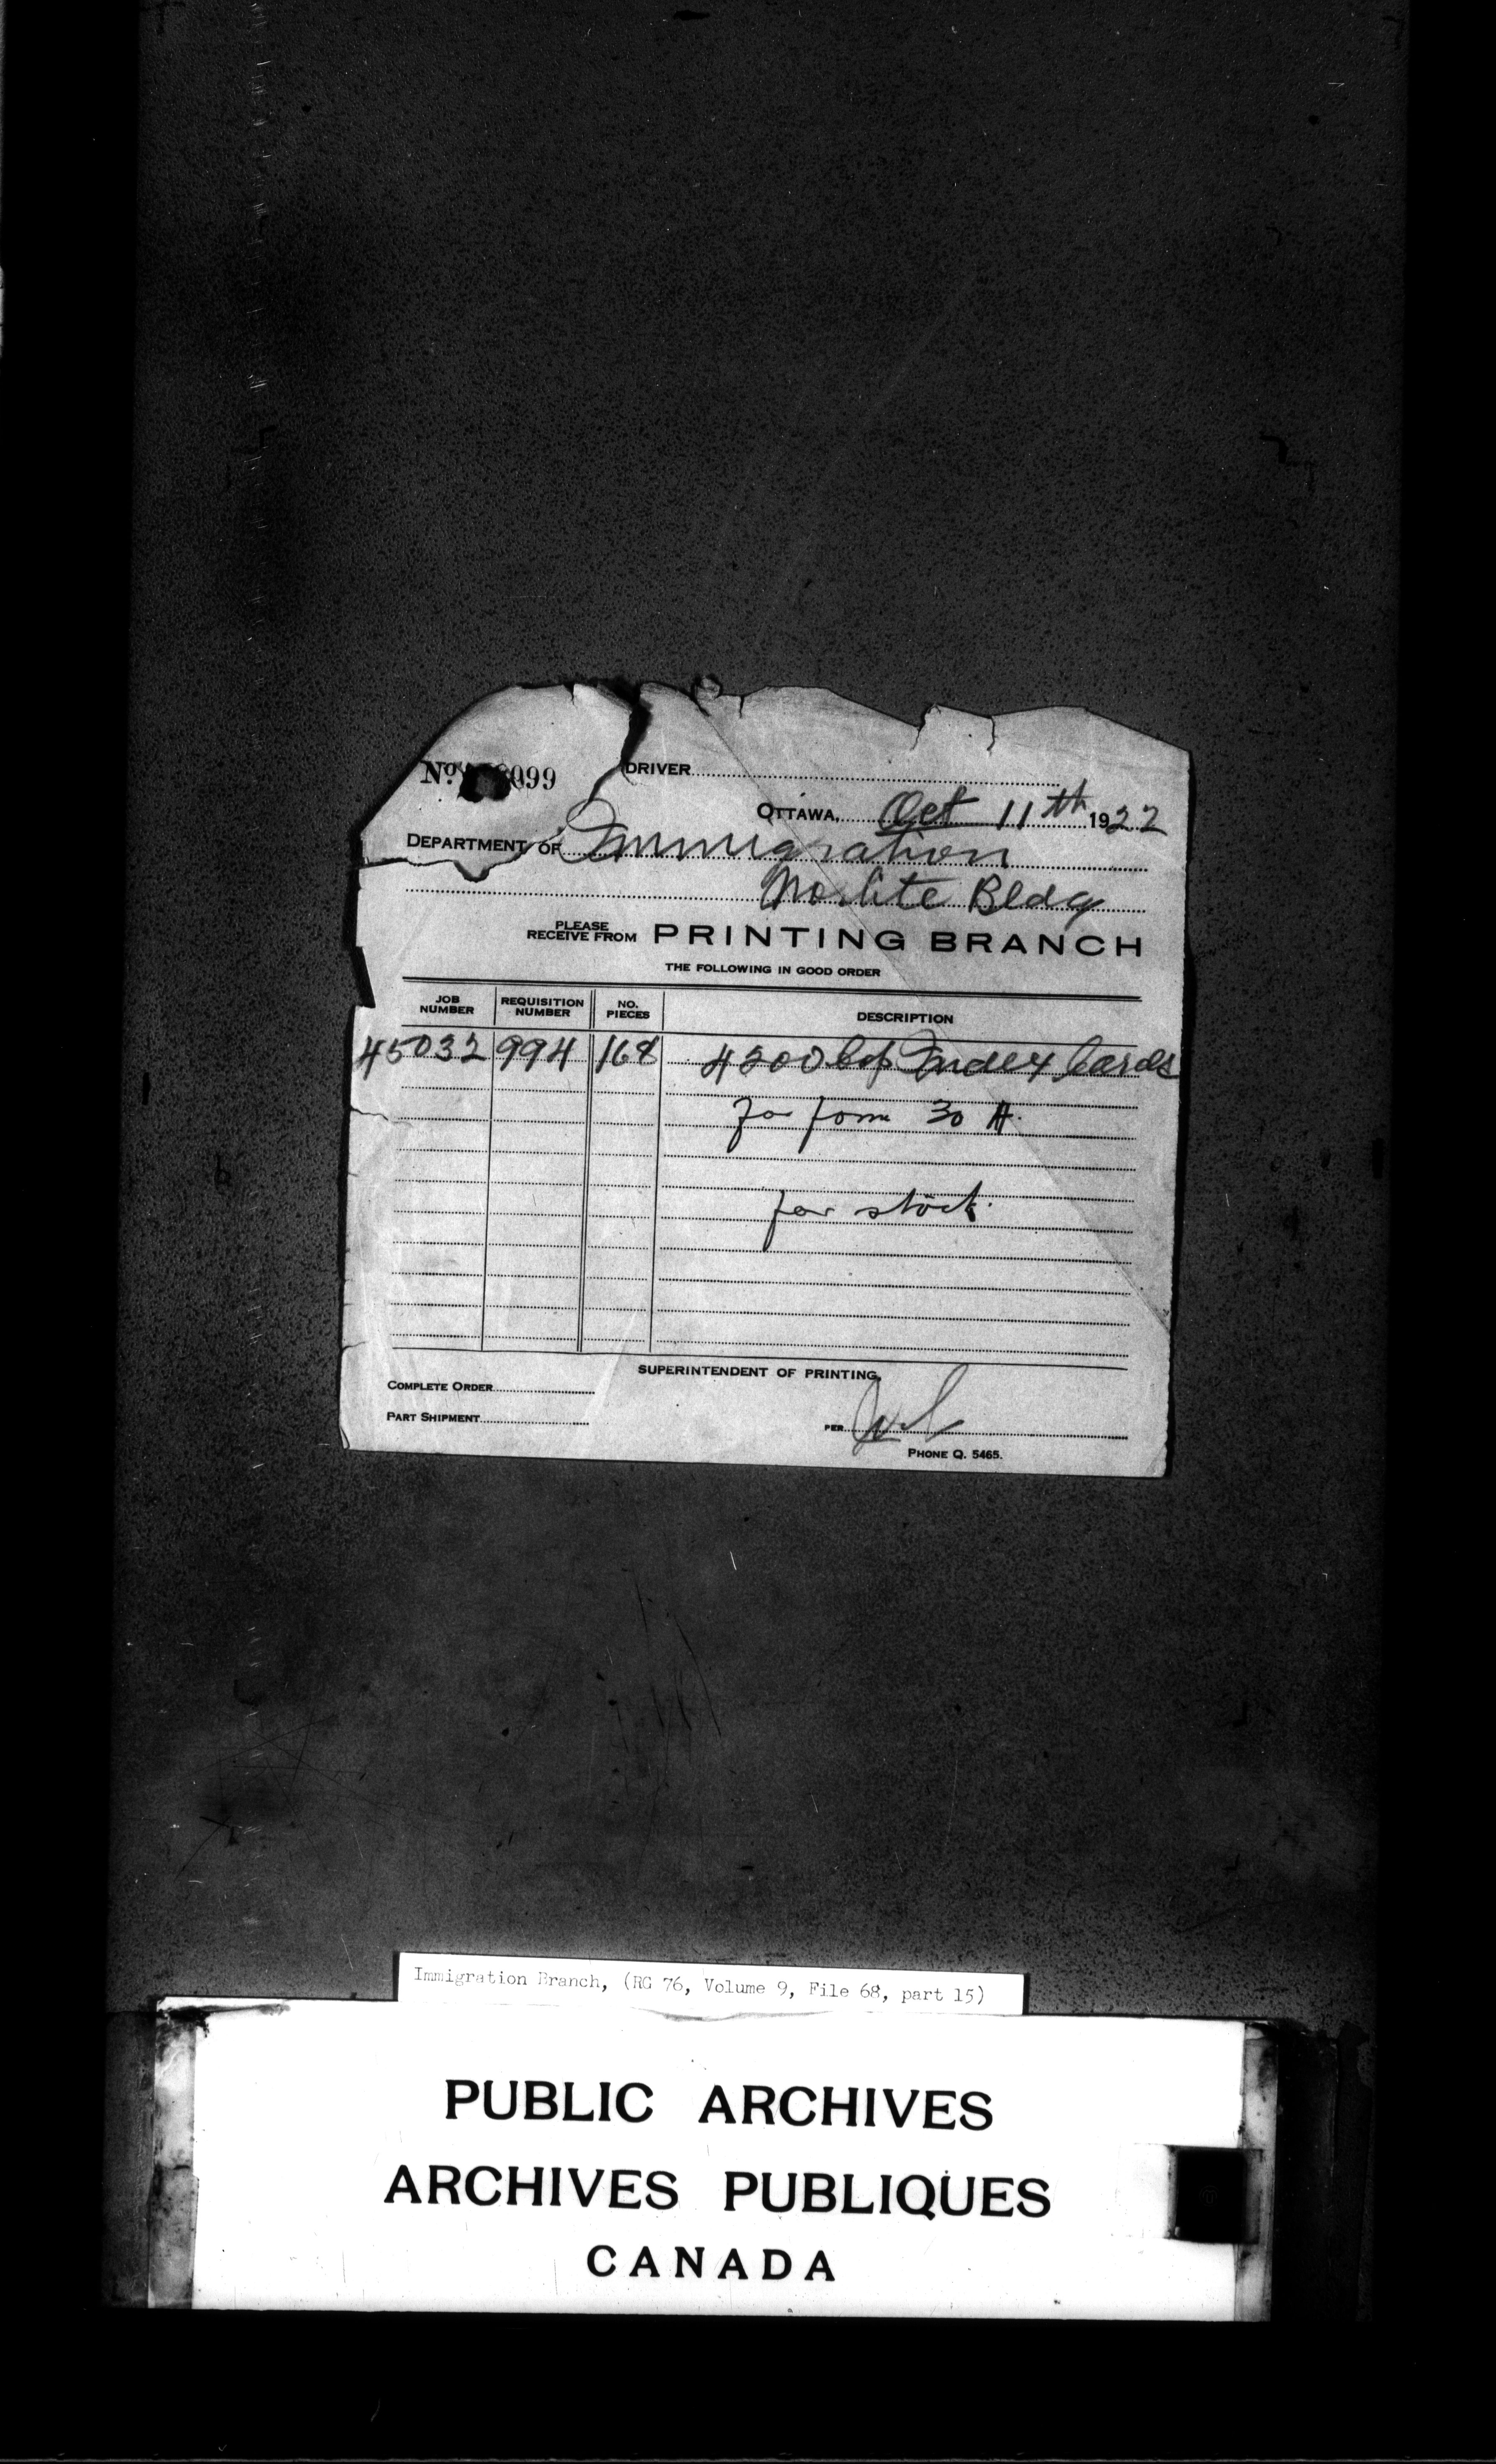 No. 099 DRIVER
OTTAWA, Oct 11th 1922
DEPARTMENT OF Immigration
Norlite Bldg
PLEASE RECEIVE FROM PRINTING BRANCH
THE FOLLOWING IN GOOD ORDER
JOB NUMBER REQUISITION NUMBER NO. PIECES DESCRIPTION
45032 994 168 Index Cards
for form 30 A.
for stock.
SUPERINTENDENT OF PRINTING,
COMPLETE ORDER
PART SHIPMENT
PER
PHONE Q. 5465.
Immigration Branch, (RG 76, Volume 9, File 68, part 15)
PUBLIC ARCHIVES
ARCHIVES PUBLIQUES
CANADA